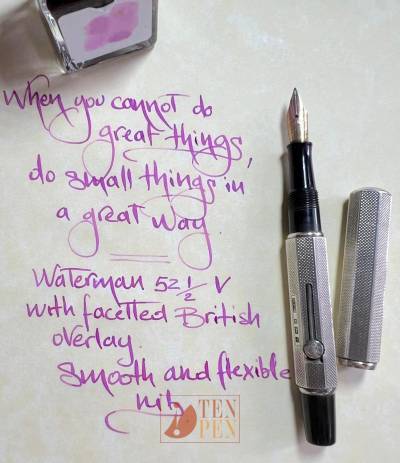 When you cannot do
great things,
do small things in
a great way
Waterman 52 1/2 V
with facetted British
overlay.
smooth and flexible
nib
TEN
PEN